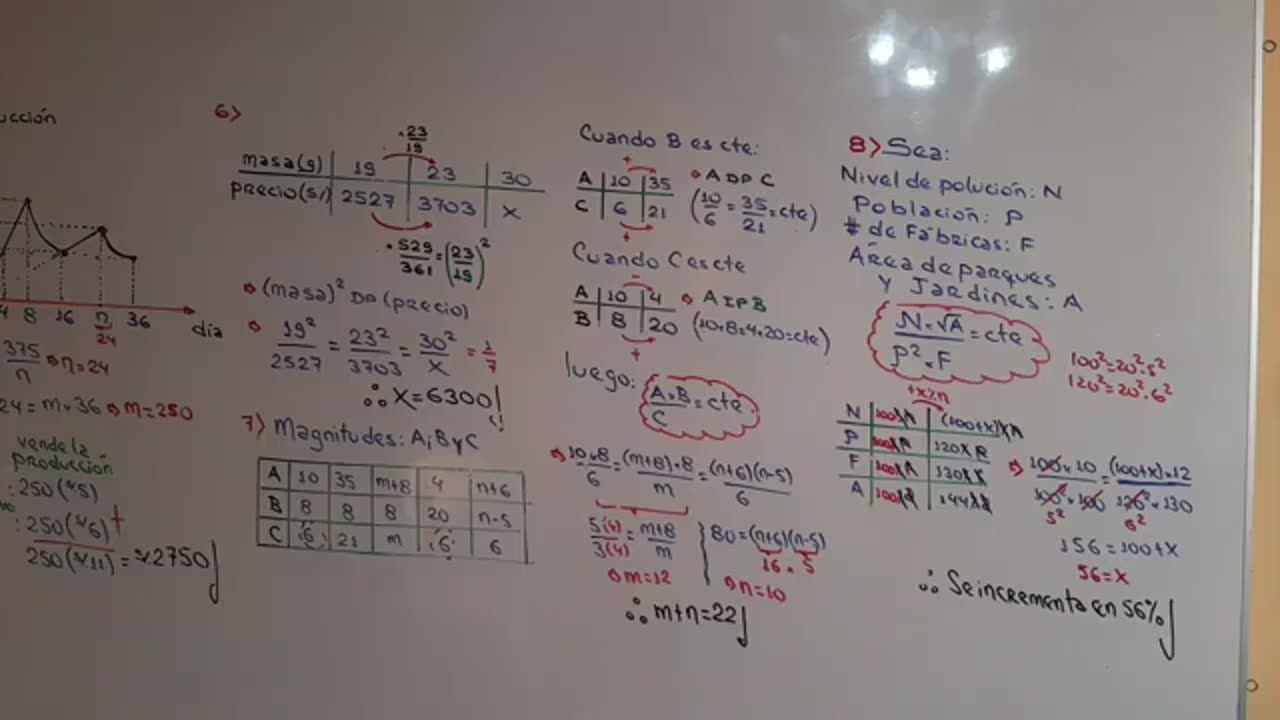 ucción
8 16 n/24 36 día
375/n n=24
24=m·36 m=250
vende la
producción
:250(5)
:250(6)
250(11)=2750
6>
·23/19
masa(g) 19 23 30
precio(S/) 2527 3703 x
·529/361=(23/19)²
(masa)² DP (precio)
19²/2527 = 23²/3703 = 30²/x = 1/7
∴ x=6300
7) Magnitudes: A; B y C
A 10 35 m+8 4 n+6
B 8 8 8 20 n-5
C 6 21 m 6 6
Cuando B es cte:
+
A 10 35 A DP C
C 6 21 (10/6 = 35/21 = cte)
+
Cuando C es cte
-
A 10 4 A IP B
B 8 20 (10·8=4·20=cte)
+
luego: A·B/C = cte
10·8/6 = (m+8)·8/m = (n+6)(n-5)/6
5(4)/3(4) = m+8/m
m=12
80=(n+6)(n-5)
16 · 5
n=10
∴ m+n=22
8> Sea:
Nivel de polución: N
Población: P
# de Fábricas: F
Área de parques
y Jardines: A
N·√A/P²·F = cte
100²=20²·5²
120²=20²·6²
+x%n
N 100 (100+x)
P 100 120
F 100 130
A 100 144
100·10/100²·100 = (100+x)·12/120²·130
5² 6²
156=100+x
56=x
∴ Se incrementa en 56%